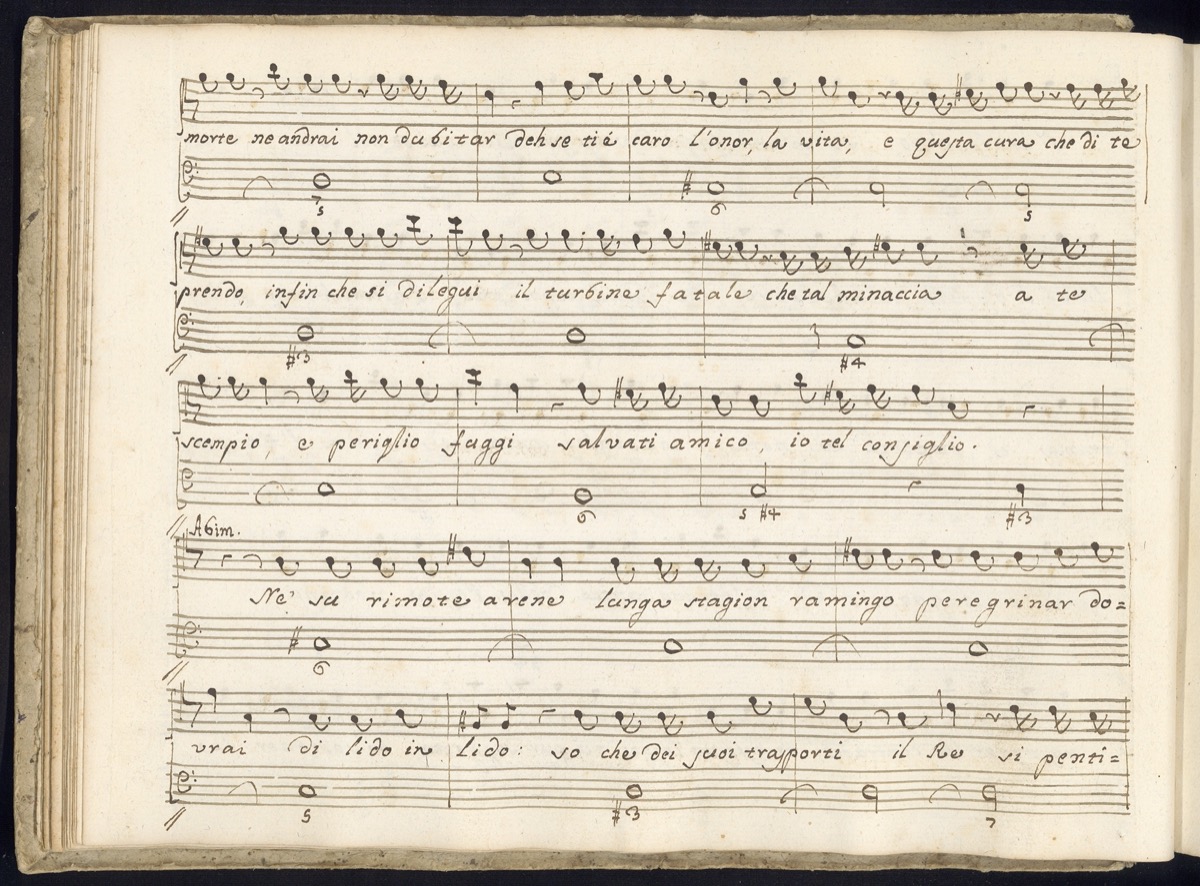 morte ne andrai non dubitar deh se ti è caro l'onor, la vita, e questa cura che di te
7 5 6 5
prendo, infin che si dilegui il turbine fatale che tal minaccia a te
#3 #4
scempio, e periglio fuggi salvati amico, io tel consiglio.
6 5 #4 #3
Abim.
Ne' su rimote arene lunga stagion ramingo peregrinar do=
6
vrai di lido in lido: so che dei suoi trasporti il Re si penti=
5 #3 7